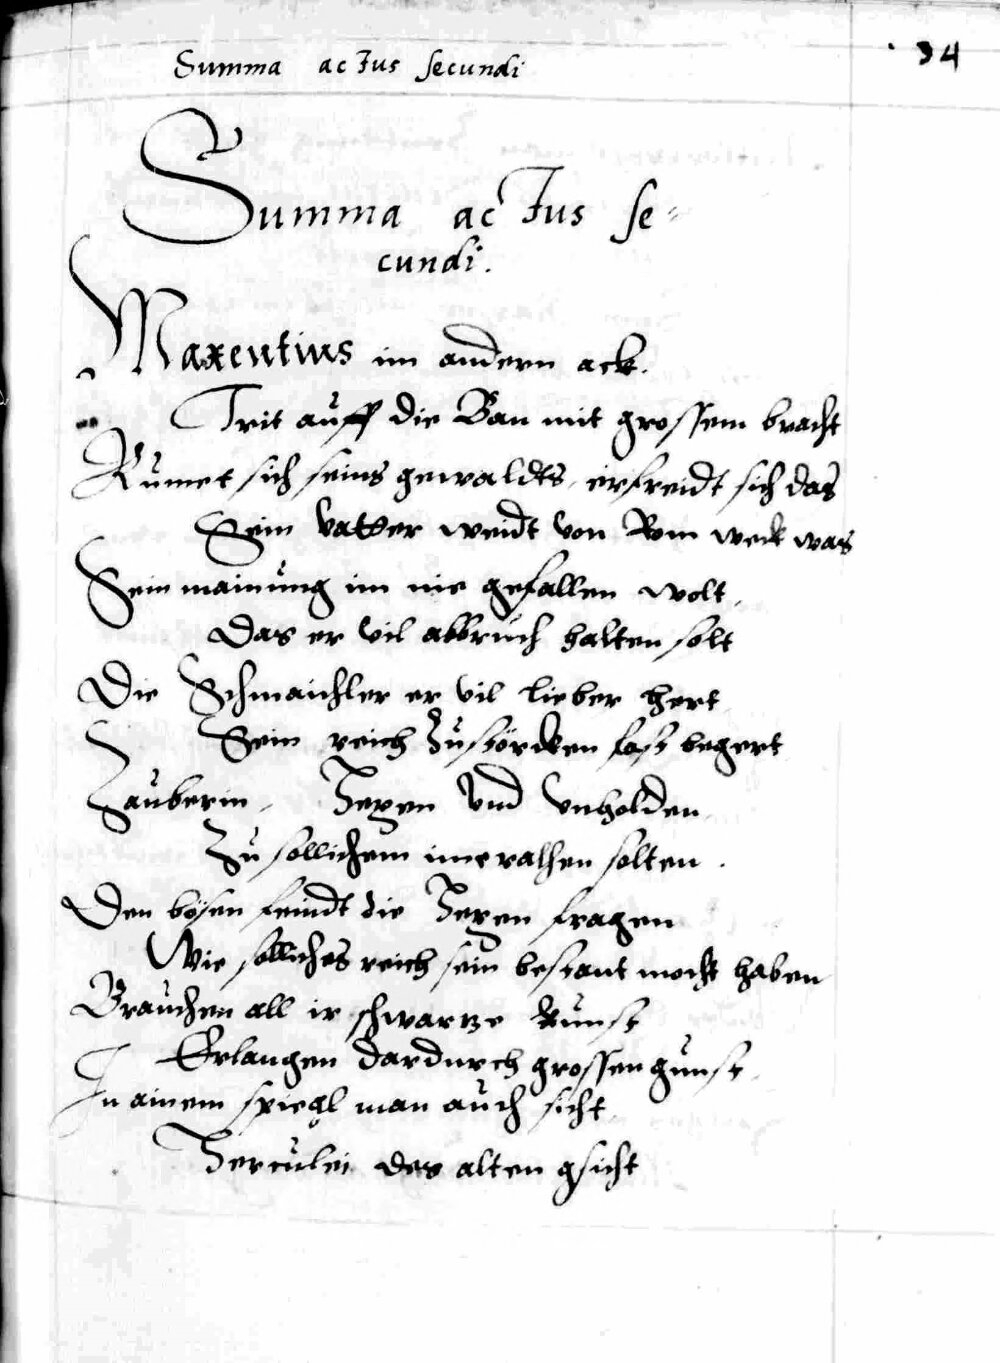 Summa actus secundi
34
Summa actus se=
cundi.
Maxentius im andern ackt.
Trit auff die Ban mit grossem bracht
Rumet sich seins gewaldts, erfreidt sich das
Sein vatter weicht von Rom weck was
Sein mainung im nie gefallen wolt,
Das er vil abbruch halten solt
Die Schmaichler er vil lieber hert
Sein reich Zusterckken fast begert
Zauberin, Hexen vnd vnholden,
Zu sollichem ime ralhen solten.
Den bösen feindt die Hexen fragen
Wie solliches reich sein bestant mocht haben
Brauchen all ir schwartze kunst
Erlangen dardurch grossen gunst,
In ainem spiegl man auch sicht
Herculei des alten gsicht